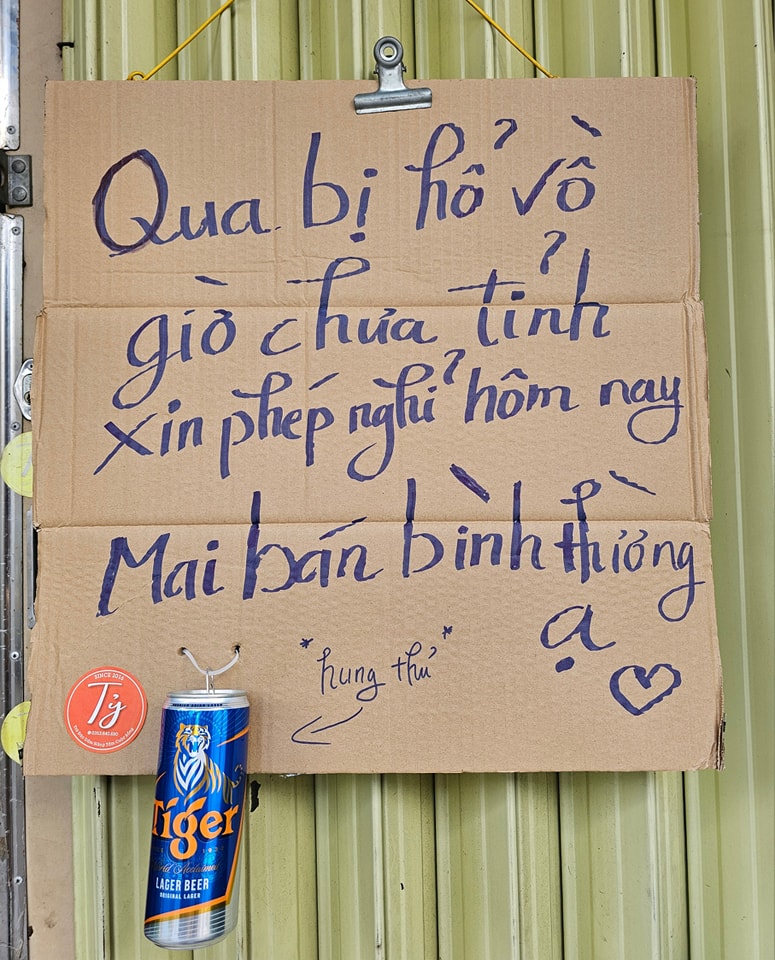 Qua bị hổ vồ
giờ chưa tỉnh
xin phép nghỉ hôm nay
Mai bán bình thường
ạ
"hung thủ"
SINCE 2016
Tỷ
Tiger
LAGER BEER
ORIGINAL LAGER